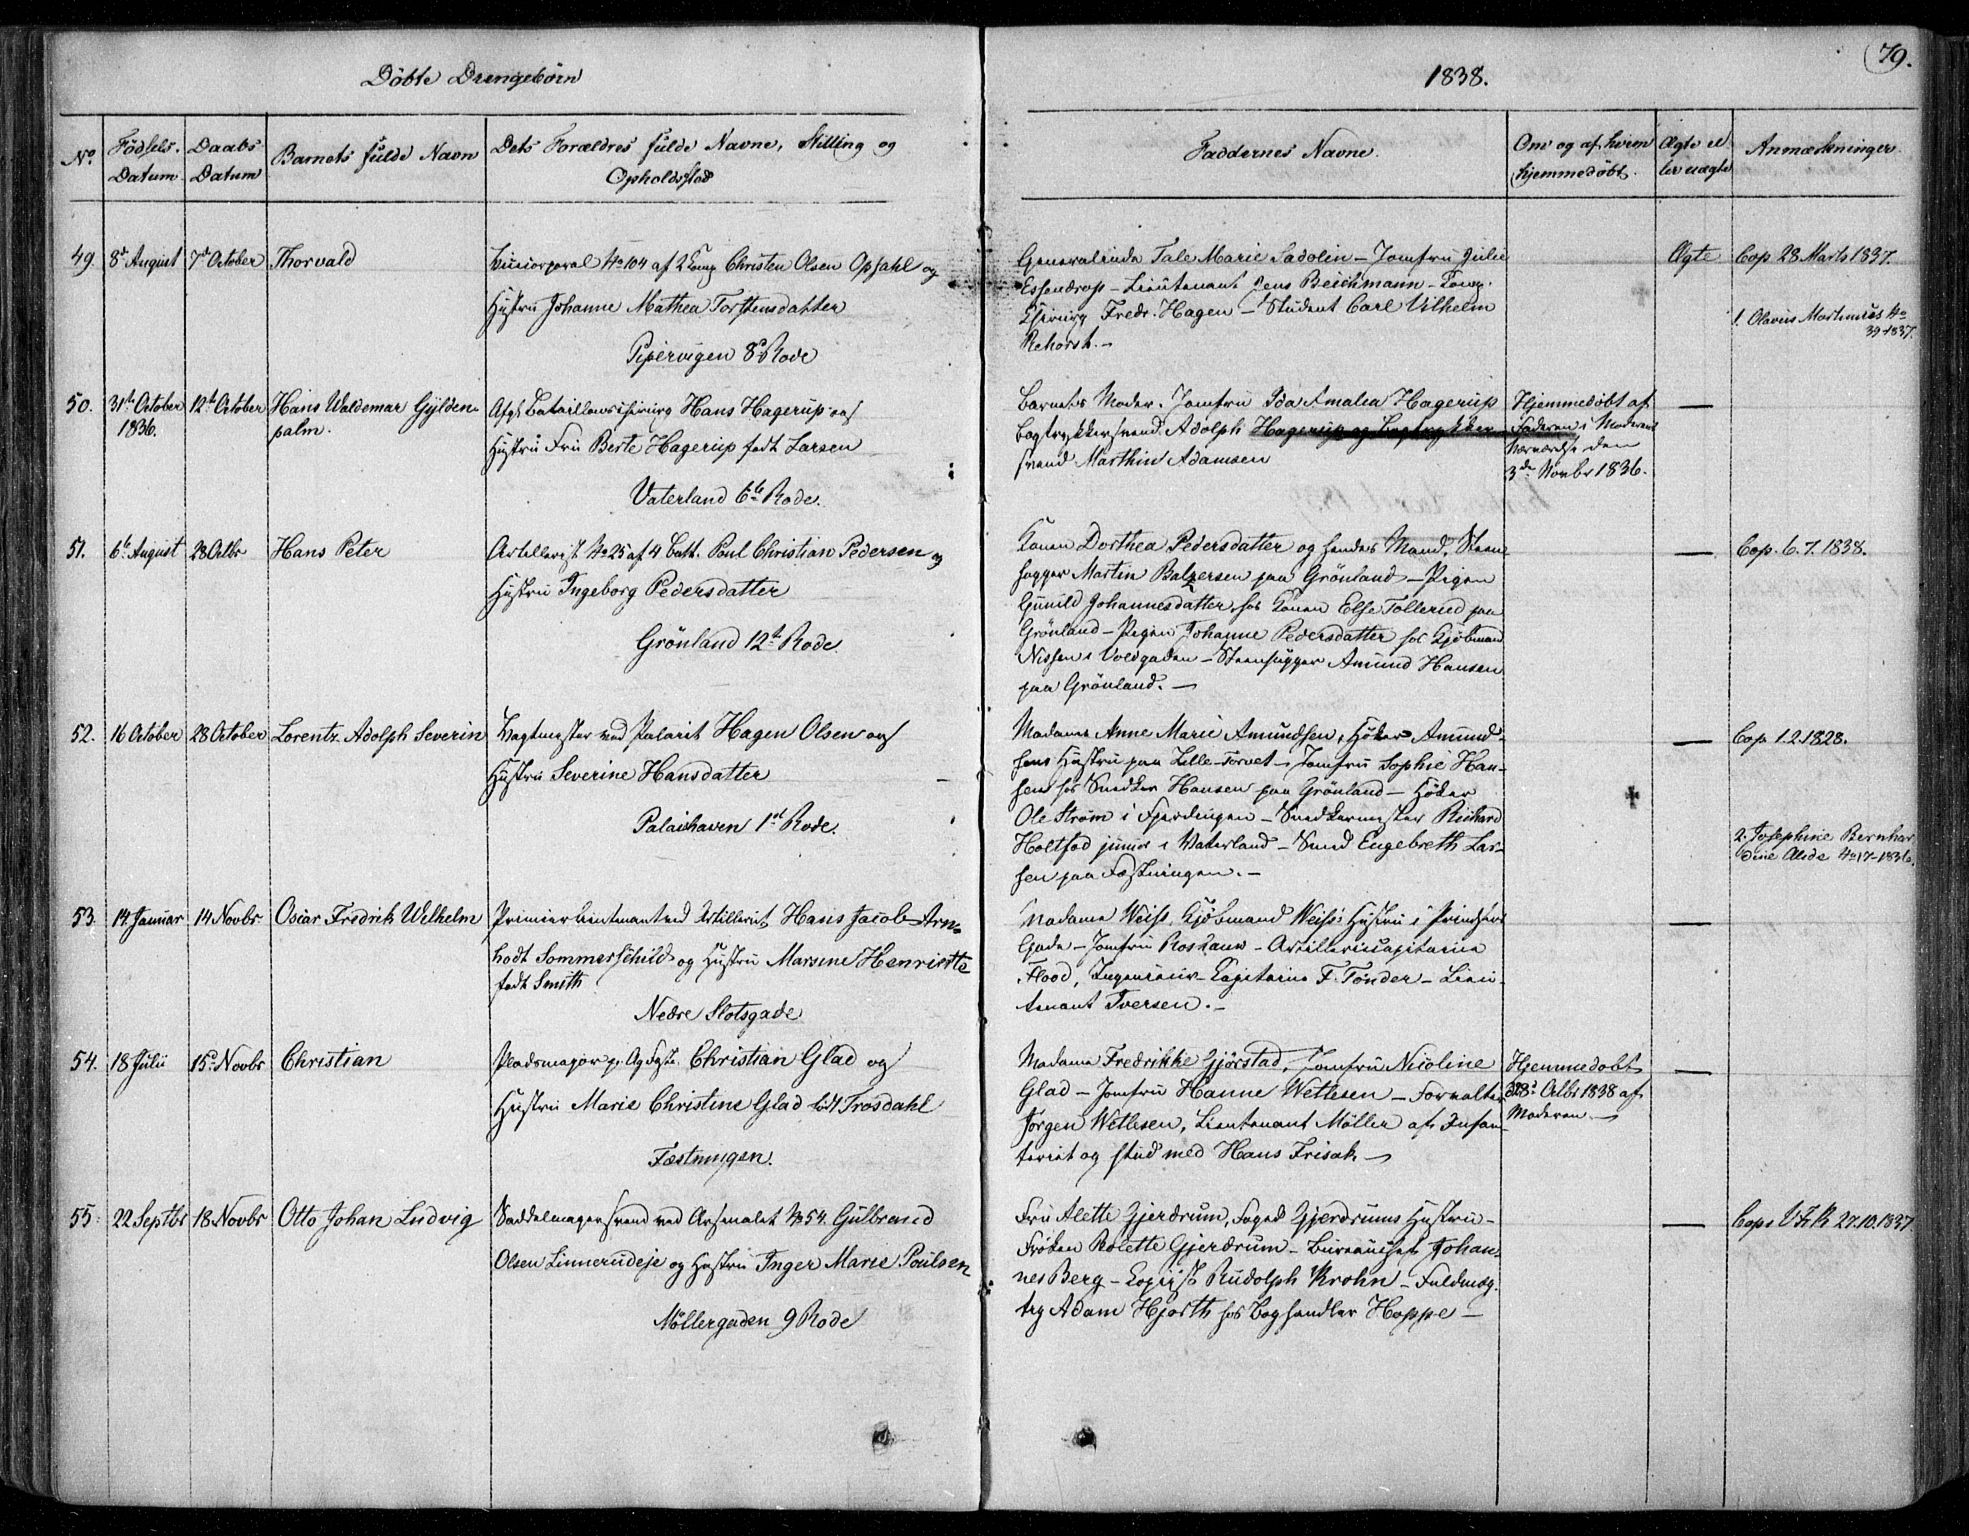 Döbte Drengebörn
1838.
79.
No. Födsels-Datum Daabs Datum Barnets fulde Navn Dets Forældres fulde Navne, Stilling og Opholdssted
Faddernes Navne. Om og af hvem hjemmedöbt. Ægte eller uægte Anmærkninger
49. 8de August 7de October Thorvald
No 104 af 2 Comp Christen Olsen Opsahl og
Hustru Johanne Mathea Torstensdatter
Pipervigen 8de Rode
Generalinde Tale Marie Sadolin – Jomfru Julie
Essendrop – Lieutenant Jens Beichmann – Comp.
Chirurg Fredr. Hagen – Student Carl Vilhelm
Rehorst. –
Ægte
Cop 28 Marts 1837.
1. Olavus Martinius No
39-1837.
50. 31te October 1836. 12te October Hans Waldemar Gyldenpalm.
Afg. Bataillonschirurg Hans Hagerup og
Hustru Fru Berte Hagerup født Larsen
Vaterland 6te Rode.
Barnets Moder. Jomfru Ida Amalia Hagerup
Bogtrykkersvend Adolph Hagerup og Bogtrykker
svend Marthin Adamsen
Hjemmedöbt af
Faderen i Moderens
Nærværelse den
3de Novbr 1836.
—
51. 6te August 28 Octbr Hans Peter
Artillerist No 25 af 4 Batt. Poul Christian Pedersen og
Hustru Ingeborg Pedersdatter
Grönland 12te Rode.
Konen Dorthea Pedersdatter og hendes Mand, Steen
hugger Martin Balzersen paa Grönland – Pigen
Gunild Johannesdatter hos Konen Else Tollerud paa
Grönland – Pigen Johanne Pedersdatter hos Kjöbmand
Nissen i Voldgaden – Steenhugger Amund Hansen
paa Grönland. –
—
Cop. 6. 7. 1838.
52. 16 October 28 October Lorentz Adolph Severin
Vagtmester ved Palaiet Hagen Olsen og
Hustru Severine Hansdatter
Palaishaven 1ste Rode.
Madame Anne Marie Amundsen, Höker Amund-
sens Hustru paa Lille-Torvet – Jomfru Sophie Han-
sen hos Snedker Hansen paa Grönland – Höker
Ole Ström i Fjerdingen – Snedkermester Richard
Holtfod junior i Vaterland – Svend Engebreth Lar-
sen paa Fæstningen. –
—
Cop. 1. 2. 1828.
2. Josephine Bernhar
dine Alide No 17-1836.
53. 14 Januar 14 Novbr Oscar Fredrik Wilhelm
Premierlieutenant ved Artilleriet Hans Jacob Arn-
hodt Sommerschild og Hustru Marsine Henriette
født Smith
Nedre Slotsgade
Madame Weiss, Kjöbmand Weiss's Hustru i Prindsens
Gade – Jomfru – Artilleriecapitaine
Flood, Ingenieur-Capitaine F. Tönder – Lieu-
tenant Iversen. –
—
54. 18 Julii 15de Novbr Christian
Pladsmajor Christian Glad og
Hustru Marie Christine Glad født Trosdahl
Fæstningen.
Madame Fredrikke Gjörstad, Jomfru Nicoline
Glad – Jomfru Hanne Wetlesen – Forvalter
Jörgen Wetlesen, Lieutenant Möller af Infan-
teriet og stud med Hans Frisak –
Hjemmedobt
28de Octbr 1838 af
Moderen –
—
55. 22 Septbr 18 Novbr Otto Johan Ludvig
Saddelmagersvend ved Arsenalet No 54. Gulbrand
Olsen Linnerudeje og Hustru Inger Marie Poulsen
Möllergaden 9 Rode
Fru Alette Gjerdrum, Foged Gjerdrums Hustru –
Fröken Bolette Gjerdrum – Bureauchef Johan-
nes Berg – Copist Rudolph Krohn – Fuldmæg-
tig Adam Hjorth hos Boghandler Hoppe –
—
Cop. V. F. K. 27.10.1837